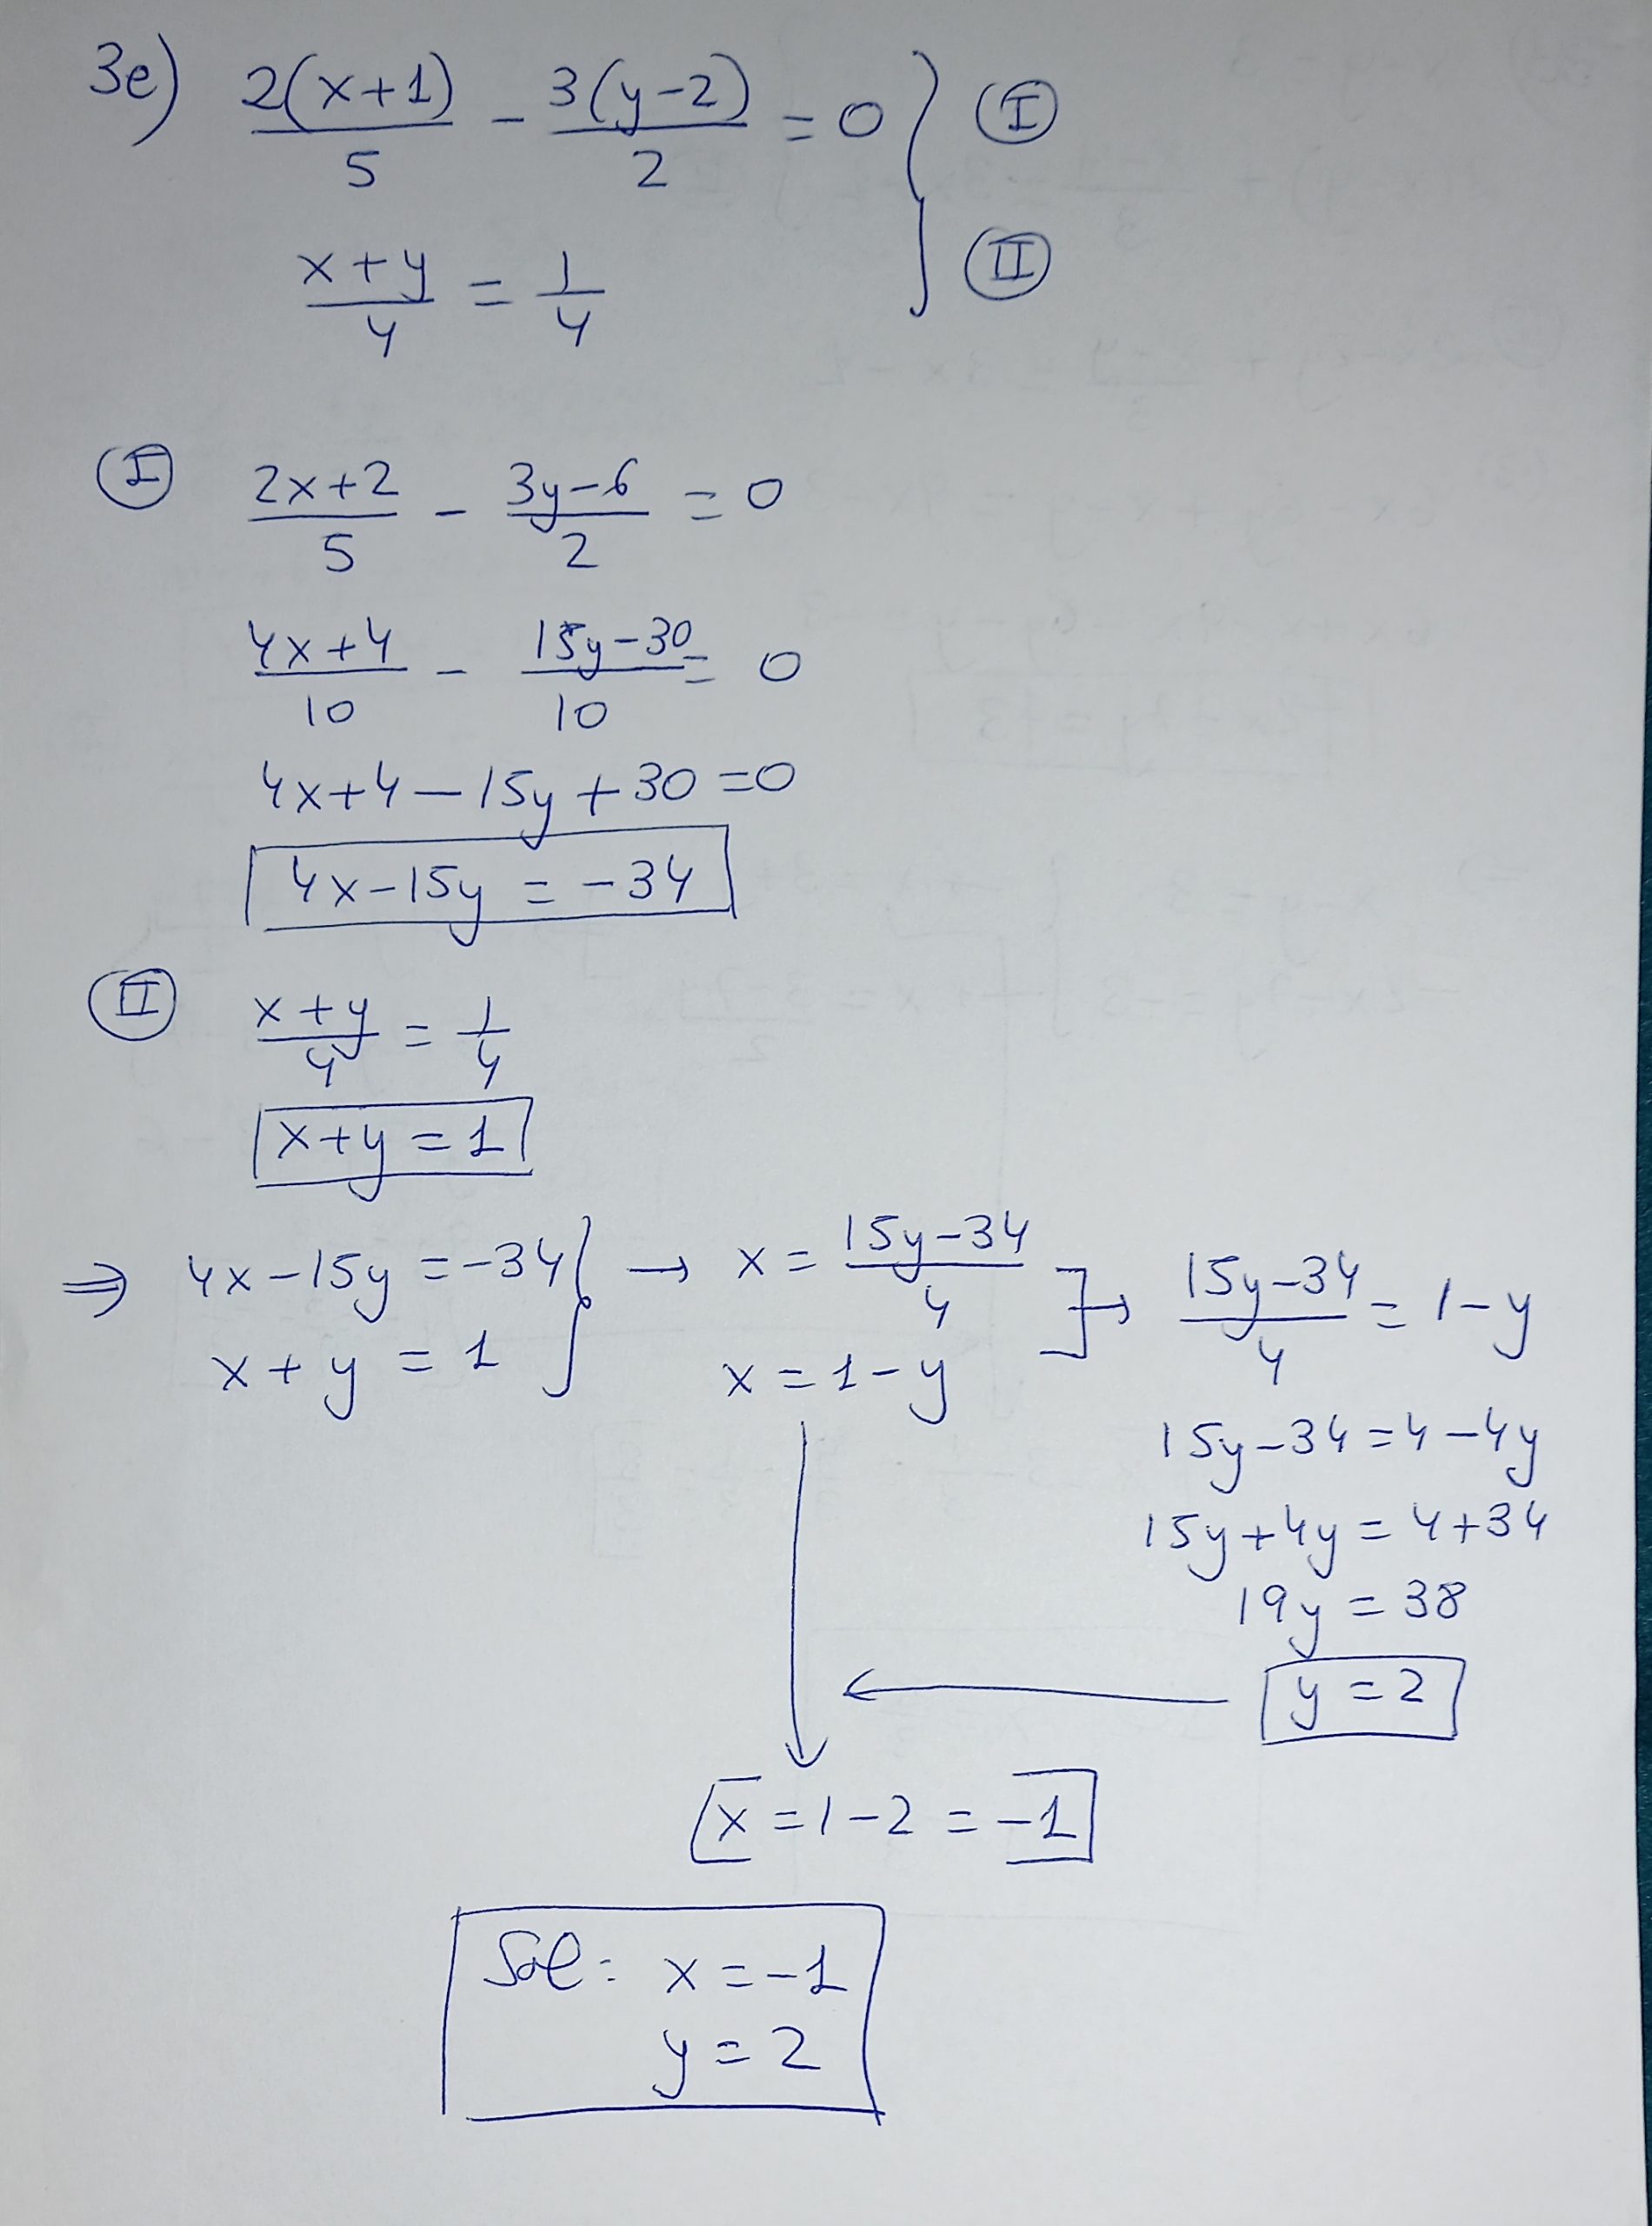 3e) 2(x+1)/5 - 3(y-2)/2 = 0 } I
x+y/4 = 1/4 } II
I 2x+2/5 - 3y-6/2 = 0
4x+4/10 - 15y-30/10 = 0
4x+4-15y+30=0
4x-15y = -34
II x+y/4 = 1/4
x+y=1
⇒ 4x-15y=-34 } → x = 15y-34/4 ] → 15y-34/4 = 1-y
x+y=1 x=1-y
15y-34=4-4y
15y+4y=4+34
19y=38
y=2
x=1-2=-1
Sol: x=-1
y=2